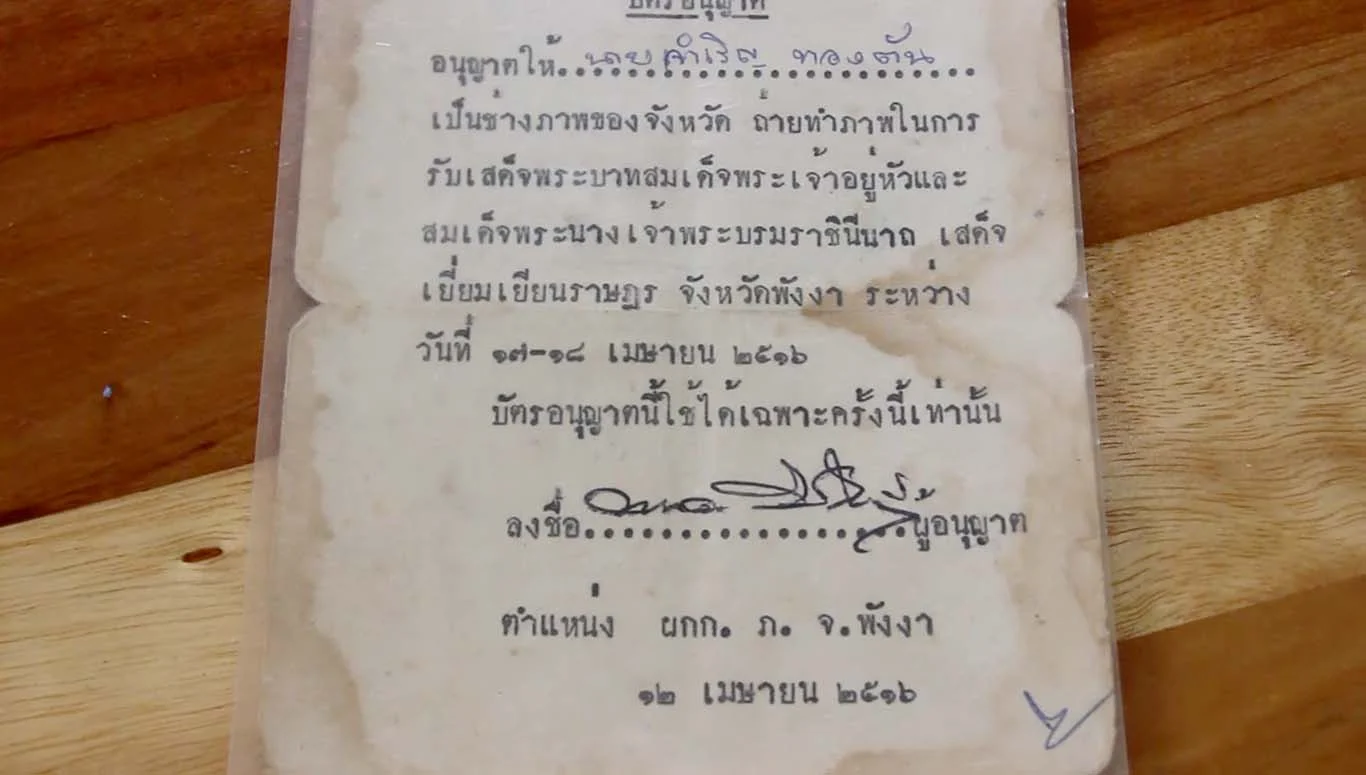 บัตรอนุญาต
อนุญาตให้..นายจำเริญ ทองตัน...
เป็นช่างภาพของจังหวัด ถ่ายทำภาพในการ
รับเสด็จพระบาทสมเด็จพระเจ้าอยู่หัวและ
สมเด็จพระนางเจ้าพระบรมราชินีนาถ เสด็จ
เยี่ยมเยียนราษฎร จังหวัดพังงา ระหว่าง
วันที่ ๑๗-๑๘ เมษายน ๒๕๑๖
บัตรอนุญาตนี้ใช้ได้เฉพาะครั้งนี้เท่านั้น
ลงชื่อ.................ผู้อนุญาต
ตำแหน่ง ผกก. ภ. จ.พังงา
๑๒ เมษายน ๒๕๑๖